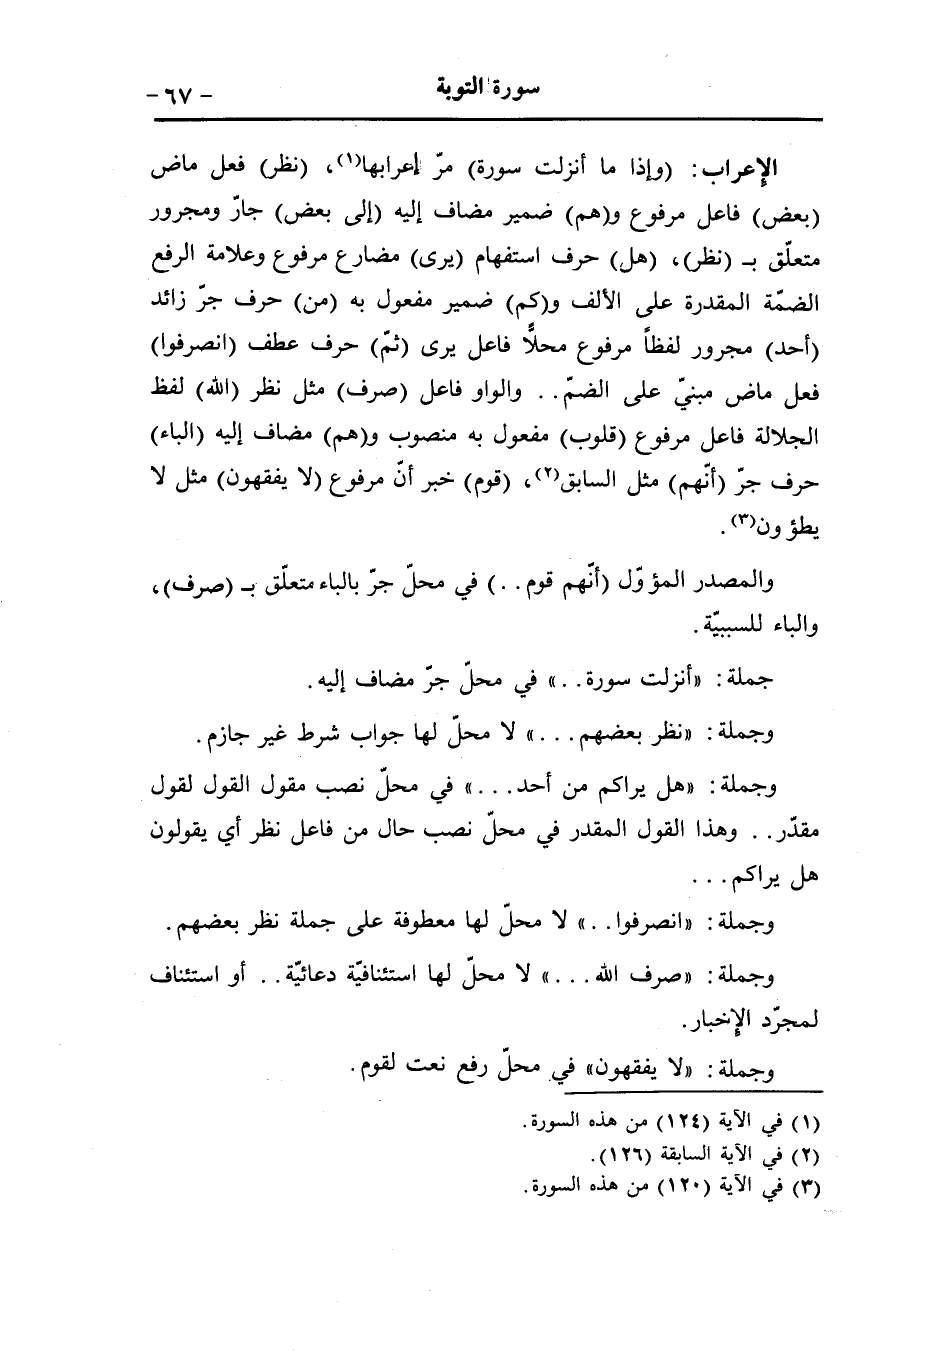 سورة التوبة
- ٦٧ -
الإعراب: (وإذا ما أنزلت سورة) مرّ إعرابها(١)، (نظر) فعل ماض
(بعض) فاعل مرفوع و(هم) ضمير مضاف إليه (إلى بعض) جارّ ومجرور
متعلّق بـ (نظر)، (هل) حرف استفهام (يرى) مضارع مرفوع وعلامة الرفع
الضمّة المقدرة على الألف و(كم) ضمير مفعول به (من) حرف جرّ زائد
(أحد) مجرور لفظاً مرفوع محلًّا فاعل يرى (ثمّ) حرف عطف (انصرفوا)
فعل ماض مبنيّ على الضمّ.. والواو فاعل (صرف) مثل نظر (الله) لفظ
الجلالة فاعل مرفوع (قلوب) مفعول به منصوب و(هم) مضاف إليه (الباء)
حرف جرّ (أنّهم) مثل السابق(٢)، (قوم) خبر أنّ مرفوع (لا يفقهون) مثل لا
يطؤون(٣).
والمصدر المؤوّل (أنّهم قوم..) في محلّ جرّ بالباء متعلّق بـ (صرف)،
والباء للسببيّة.
جملة: «أنزلت سورة..» في محلّ جرّ مضاف إليه.
وجملة: «نظر بعضهم...» لا محلّ لها جواب شرط غير جازم.
وجملة: «هل يراكم من أحد...» في محلّ نصب مقول القول لقول
مقدّر.. وهذا القول المقدر في محلّ نصب حال من فاعل نظر أي يقولون
هل يراكم...
وجملة: «انصرفوا..» لا محلّ لها معطوفة على جملة نظر بعضهم.
وجملة: «صرف الله...» لا محلّ لها استئنافيّة دعائيّة.. أو استئناف
لمجرّد الإخبار.
وجملة: «لا يفقهون» في محلّ رفع نعت لقوم.
(١) في الآية (١٢٤) من هذه السورة.
(٢) في الآية السابقة (١٢٦).
(٣) في الآية (١٢٠) من هذه السورة.